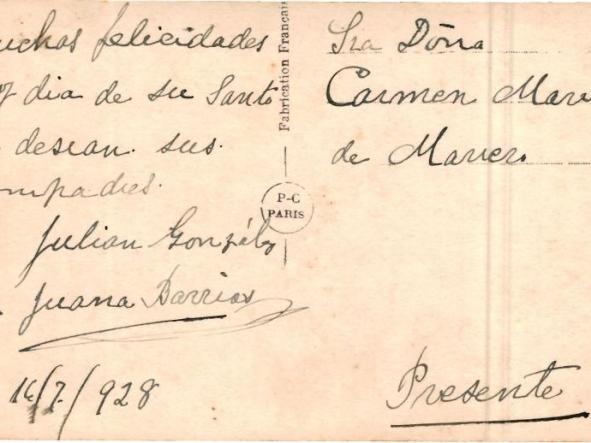 uchas felicidades
dia de su Santo
desean sus
mpadres.
Julian González
Juana Barrios
16/7/928
Fabrication Françai
P-C
PARIS
Sra Dōña
Carmen Mar
de
Presente